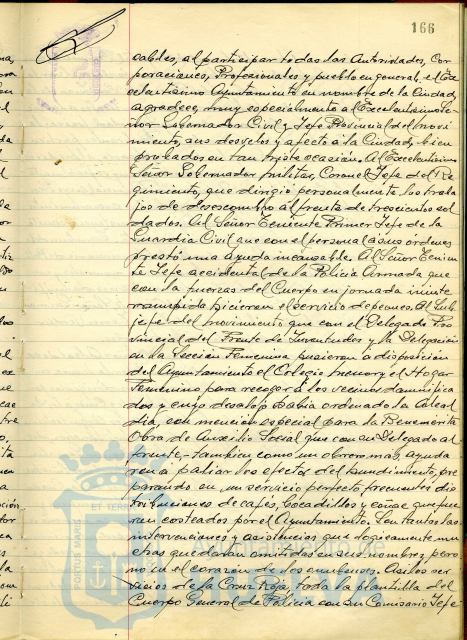 166
cables, al participar todas las Autoridades, Cor
poraciones, Profesionales y pueblo en general, el Ex
celentísimo Ayuntamiento en nombre de la Ciudad,
agradece, muy especialmente al Excelentísimo Se-
ñor Gobernador Civil y Jefe Provincial del Movi
miento, sus desvelos y afecto a la Ciudad, bien
probados en tan triste ocasión. Al Excelentísimo
Señor Gobernador militar, Coronel Jefe del Re
gimiento, que dirigió personalmente los traba
jos de desescombro al frente de trescientos sol
dados. Al Señor Teniente Primer Jefe de la
Guardia Civil que con el personal a sus ordenes
prestó una ayuda incansable. Al Señor Tenien
te Jefe accidental de la Policia Armada que
con la fuerzas del Cuerpo en jornada ininte
rrumpida hicieron el servicio de peones. Al Sub
jefe del Movimiento que con el Delegado Pro
vincial del Frente de Juventudes y la Delegación
en la Sección Femenina pusieron a disposición
del Ayuntamiento el Colegio menor y el Hogar
Femenino para recoger á los vecinos damnifica
dos y cuyo desalojo había ordenado la Alcal
día, con mención especial para la Benemérita
Obra de Auxilio Social que con su Delegado al
frente, - tambien como un obrero mas, ayuda
ron a paliar los efectos del hundimiento, pre
parando en un servicio perfecto frecuentes dis
tribuciones de cafés, bocadillos y coñac que fue
ron costeados por el Ayuntamiento. Son tantas las
intervenciones y asistencias que logicamente mu
chas quedaran omitidas en sus nombres pero
no en el corazón de los onubenses. Asi los ser
vicios de la Cruz Roja, toda la plantilla del
Cuerpo General de Policia con su Comisario Jefe
PORTUS MARIS
ET TERRAE